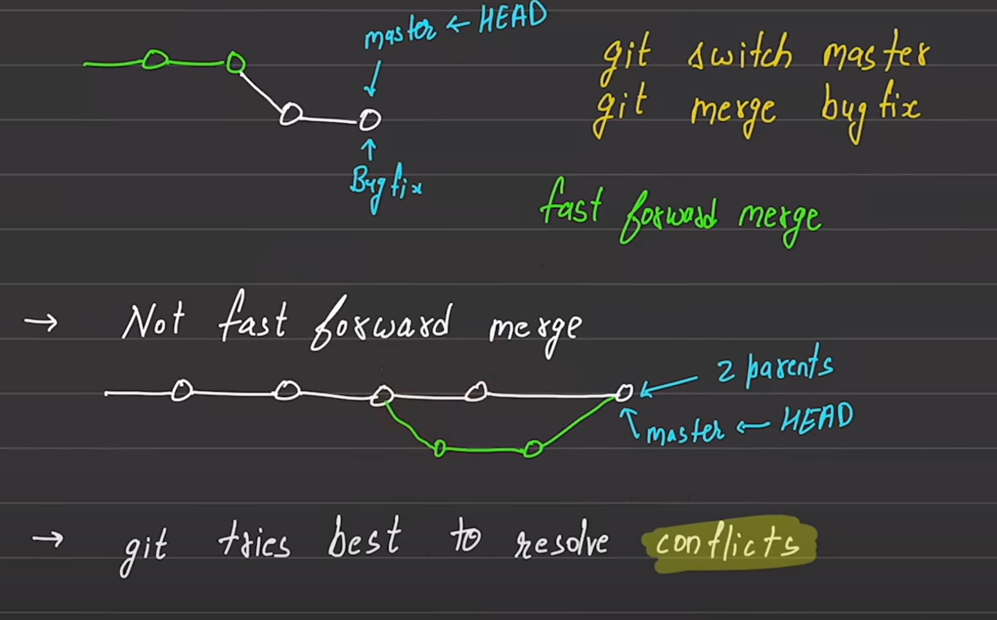 master ← HEAD
git switch master
git merge bugfix
Bugfix
fast forward merge
→ Not fast forward merge
2 parents
master ← HEAD
→ git tries best to resolve conflicts